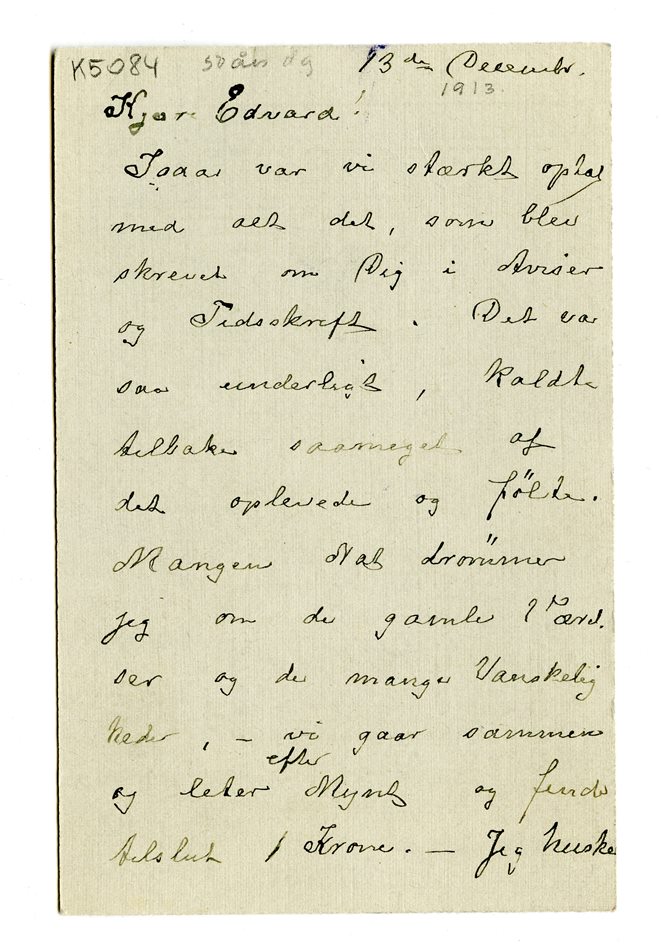 K5084 50 års dg 13 den Decembr.
1913.
Kjære Edvard!
Iaar var vi stærkt optat
med alt det, som blev
skrevet om Dig i Aviser
og Tidsskrift. Det var
saa underligt, kaldte
tilbake saameget af
det oplevede og fölte.
Mangen Nat drömmer
jeg om de gamle Færd.
ser og de mange Vanskelig
heder, – vi gaar sammen
og leter efter Mynt og finde
tilslut 1 Krone. – Jeg huske